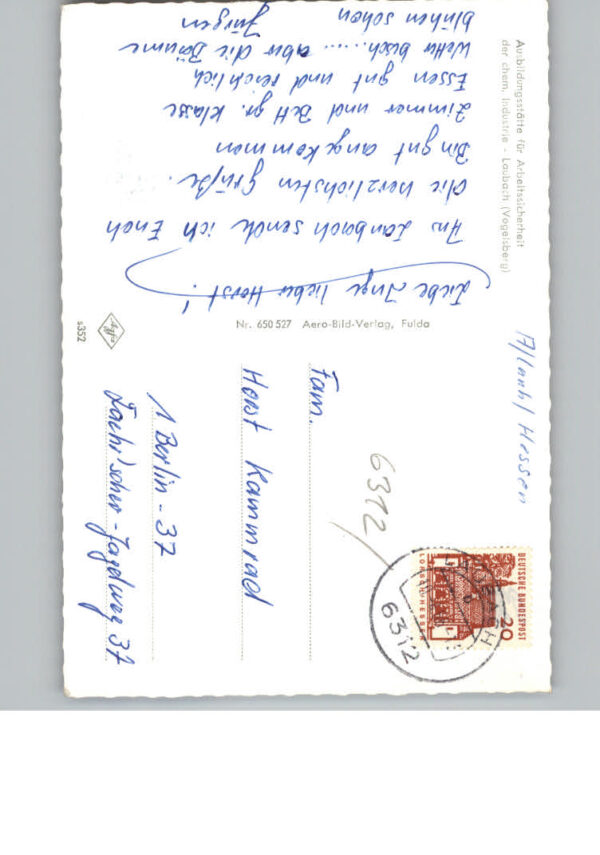 Ausbildungsstätte für Arbeitssicherheit
der chem. Industrie - Laubach (Vogelsberg)
Liebe Inge lieber Horst!
Aus Laubach sende ich Euch
die herzlichsten Grüße.
Bin gut angekommen
Zimmer und Bett gr. Klasse
Essen gut und reichlich
Wetter besch..... aber die Bäume
blühen schon
Jürgen
Nr. 650 527 Aero-Bild-Verlag, Fulda
Agfa
s352
Hessen
6312/
DEUTSCHE BUNDESPOST
20
LORSCH/HESSEN
LAUBACH
6312
Fam.
Horst Kammrad
1 Berlin - 37
37